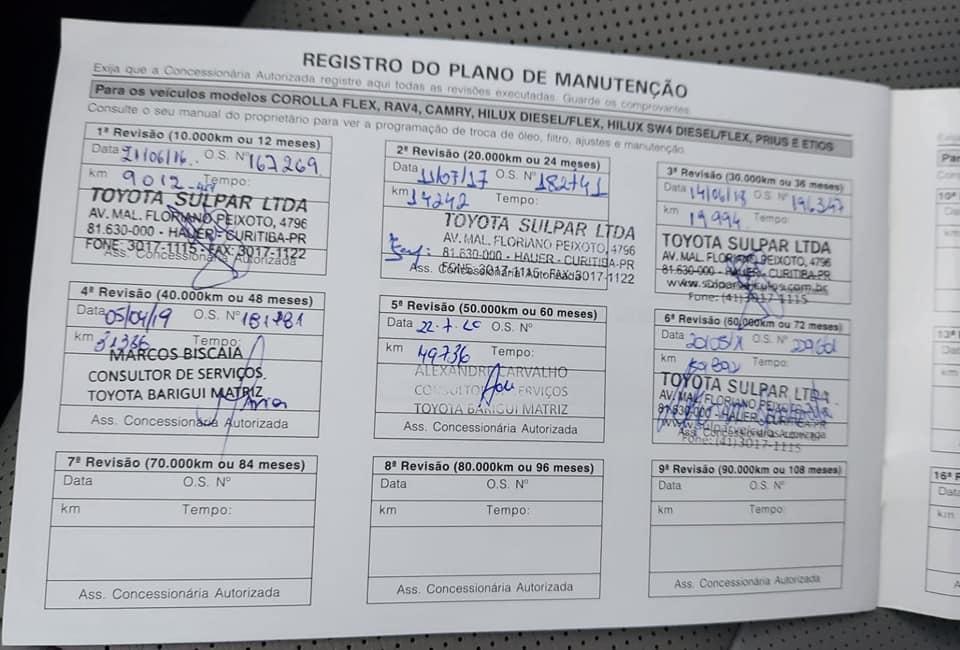 REGISTRO DO PLANO DE MANUTENÇÃO
Exija que a Concessionária Autorizada registre aqui todas as revisões executadas. Guarde os comprovantes.
Para os veículos modelos COROLLA FLEX, RAV4, CAMRY, HILUX DIESEL/FLEX, HILUX SW4 DIESEL/FLEX, PRIUS E ETIOS
Consulte o seu manual do proprietário para ver a programação de troca de óleo, filtro, ajustes e manutenção.
1ª Revisão (10.000km ou 12 meses)
Data 21/06/16 O.S. Nº 167269
km 9012 Tempo:
TOYOTA SULPAR LTDA
AV. MAL. FLORIANO PEIXOTO, 4796
81.630-000 - HAUER - CURITIBA-PR
FONE: 3017-1115 - FAX: 3017-1122
Ass. Concessionária Autorizada
2ª Revisão (20.000km ou 24 meses)
Data 11/07/17 O.S. Nº 182741
km 14242 Tempo:
TOYOTA SULPAR LTDA
AV. MAL. FLORIANO PEIXOTO, 4796
81.630-000 - HAUER - CURITIBA-PR
FONE: 3017-1115 - FAX: 3017-1122
Ass. Concessionária Autorizada
3ª Revisão (30.000km ou 36 meses)
Data 14/06/18 O.S. Nº 196347
km 19994 Tempo:
TOYOTA SULPAR LTDA
AV. MAL. FLORIANO PEIXOTO, 4796
81.630-000 - HAUER - CURITIBA-PR
www.sulparveiculos.com.br
Fone: (41)3017-1115
4ª Revisão (40.000km ou 48 meses)
Data 05/04/19 O.S. Nº 181781
km 31336 Tempo:
MARCOS BISCAIA
CONSULTOR DE SERVIÇOS
TOYOTA BARIGUI MATRIZ
Ass. Concessionária Autorizada
5ª Revisão (50.000km ou 60 meses)
Data 22-7-20 O.S. Nº
km 49736 Tempo:
ALEXANDRE CARVALHO
CONSULTOR DE SERVIÇOS
TOYOTA BARIGUI MATRIZ
Ass. Concessionária Autorizada
6ª Revisão (60.000km ou 72 meses)
Data O.S. Nº
km Tempo:
TOYOTA SULPAR LTDA
AV. MAL. FLORIANO PEIXOTO
81.630-000 - HAUER - CURITIBA-PR
Fone: (41)3017-1115
7ª Revisão (70.000km ou 84 meses)
Data O.S. Nº
km Tempo:
Ass. Concessionária Autorizada
8ª Revisão (80.000km ou 96 meses)
Data O.S. Nº
km Tempo:
Ass. Concessionária Autorizada
9ª Revisão (90.000km ou 108 meses)
Data O.S. Nº
km Tempo:
Ass. Concessionária Autorizada